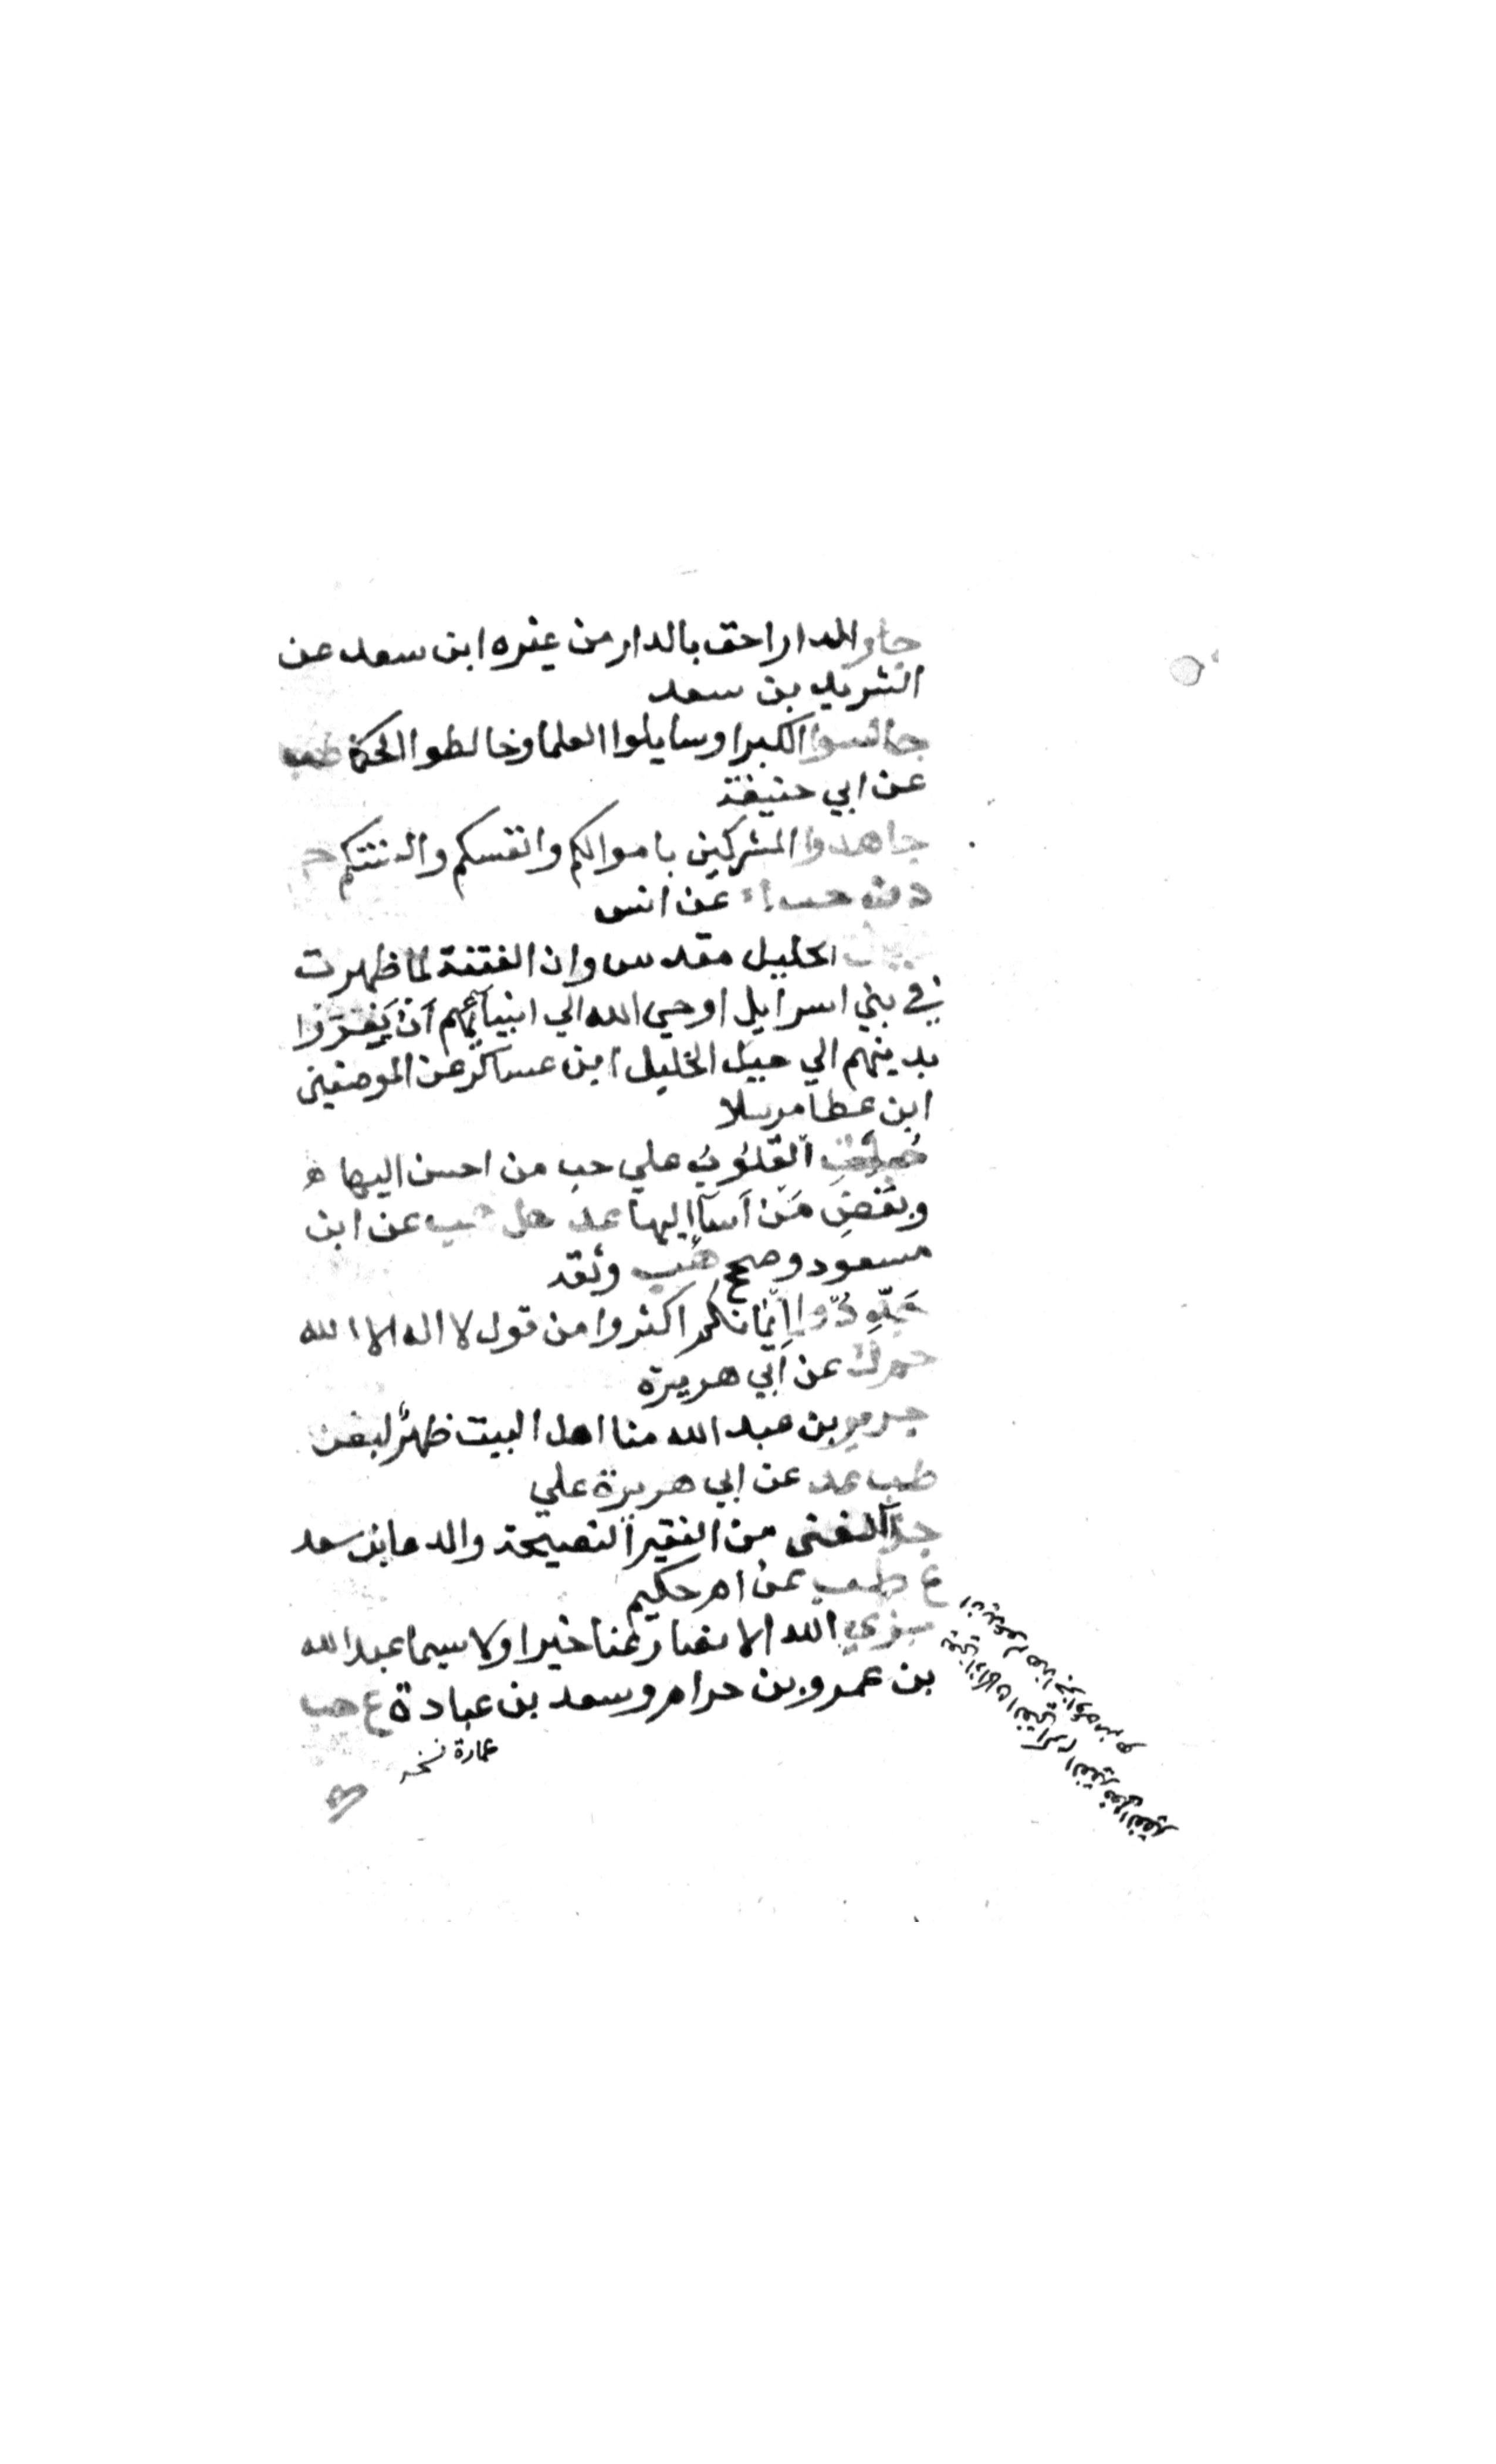 جار الدار احق بالدار من غيره ابن سعد عن
الشريد بن سعد
جالسوا الكبرا وسايلوا العلما وخالطوا الحكما طب
عن ابي حنيفة
جاهدوا المشركين باموالكم وانفسكم والسنتكم حم
د ن حب ك عن انس
الخليل مقدس وان الفتنة لما ظهرت
في بني اسرايل اوحي الله الي انبيآئهم اَنْ يَفِرّوْا
بدينهم الي جبل الخليل ابن عساكر عن الوضين
ابن عطا مرسلا
جُبِلَتِ القُلُوْبُ علي حبِ من احسن اليها
وبغضِ مَنْ اَسآ اليها عد حل هب عن ابن
مسعود وصحح هب وقفه
جَدِّدُوا اِيْمانكم اكثروا من قول لا اله الا الله
حم ك عن ابي هريرة
جرير بن عبد الله منا اهل البيت ظهرٌ لبطن
طب عد عن علي
الغني من الفقير النصيحة والدعا ابن سعد
ع طب عن ام حكيم
جزي الله الانصار عنا خيرا ولا سيما عبد الله
بن عمرو بن حرام وسعد بن عبادة ع حب
عمارة نسخه